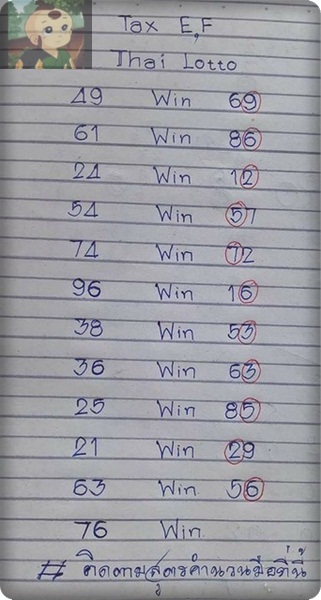 Tax E,F
Thai Lotto
49 Win 69
61 Win 86
24 Win 12
54 Win 57
74 Win 72
96 Win 16
38 Win 53
36 Win 63
25 Win 85
21 Win 29
63 Win 56
76 Win
# ติดตามสูตรคำนวนมือที่นี้